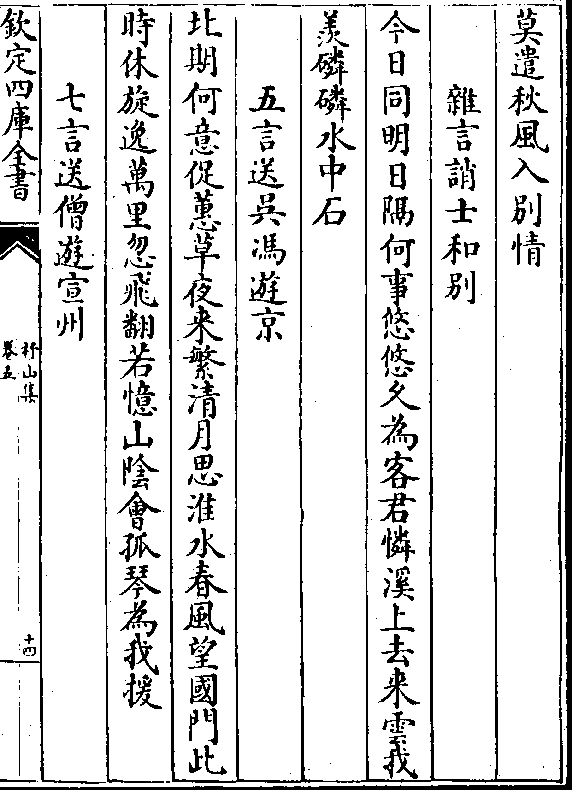 莫遣秋風入別情
雜言誚士和別
今日同明日隅何事悠悠久為客君憐溪上去來雲我
羨磷磷水中石
五言送吳馮遊京
北期何意促蕙草夜来繁清月思淮水春風望國門此
時休旋逸萬里忽飛翻若憶山陰會孤琴為我援
七言送僧遊宣州
欽定四庫全書
杼山集
卷五
十四